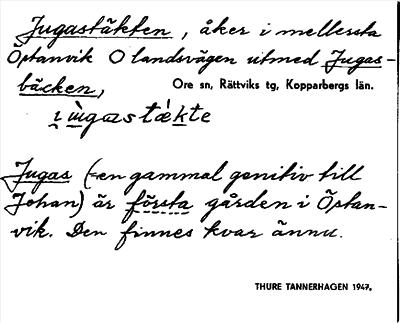 Jugastäkten, åker i mellersta
Östanvik O landsvägen utmed Jugas-
bäcken,
Ore sn, Rättviks tg, Kopparbergs län.
i ùgastàkte
Jugas (=en gammal genitiv till
Johan) är första gården i Östan-
vik. Den finnes kvar ännu.
THURE TANNERHAGEN 1947.